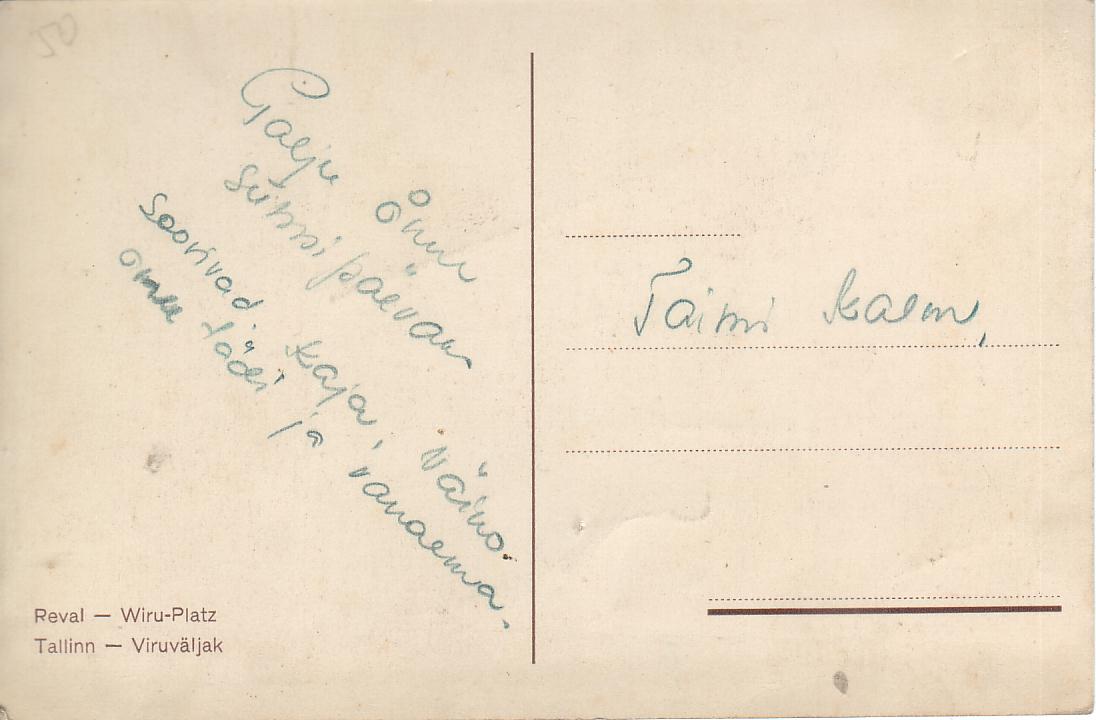 50
Palju õnne
sünnipäevan
soovivad Kaja, Väino.
onu tädi ja vanaema.
Taimi Kalm,
Reval — Wiru-Platz
Tallinn — Viruväljak